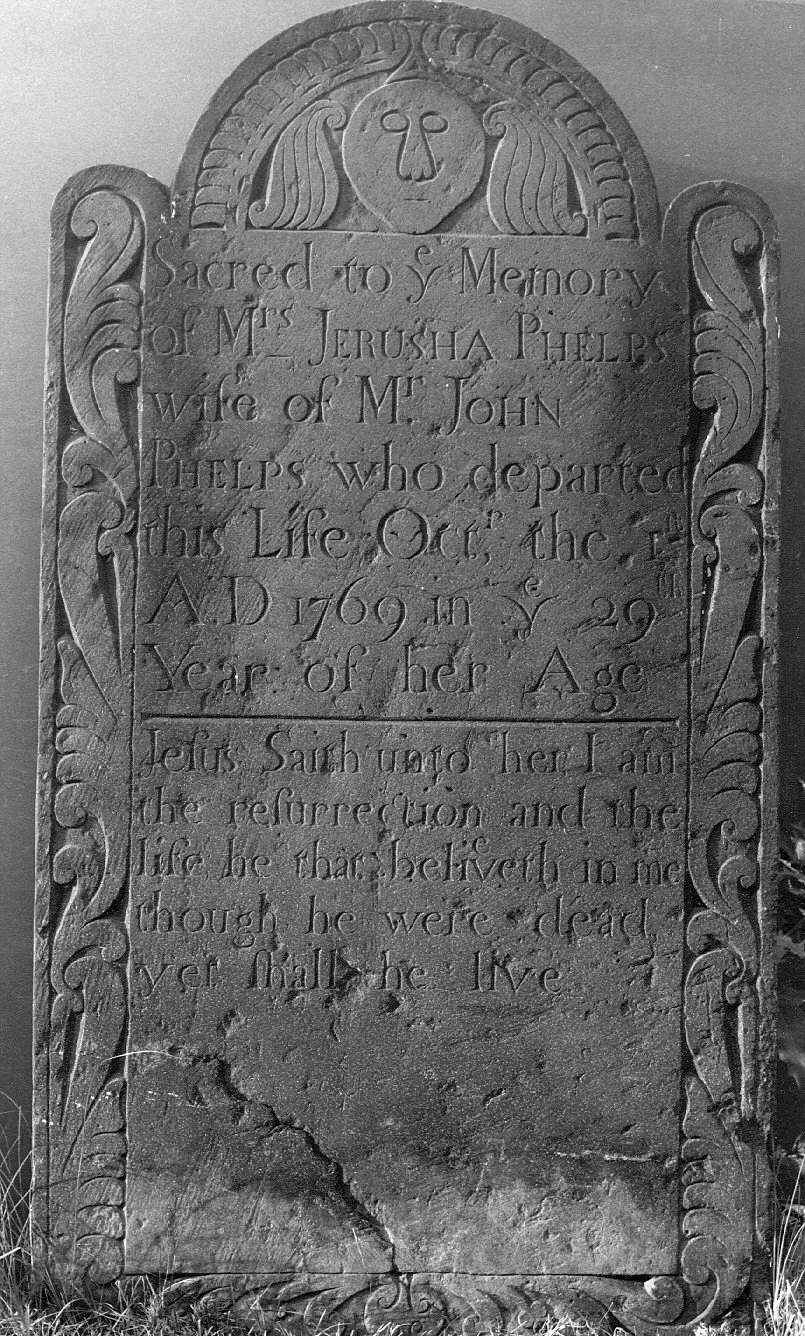 Sacred to yͤ Memory
of Mʳˢ. JERUSHA PHELPS
wife of Mʳ. JOHN
PHELPS who departed
this Life Octʳ, the 1ᵗʰ
A.D 1769 in yͤ 29ᵗʰ
Year of her Age
Jeſus Saith unto her I am
the reſurrection and the
life he that beliveth in me
though he were dead
yet ſhall he live